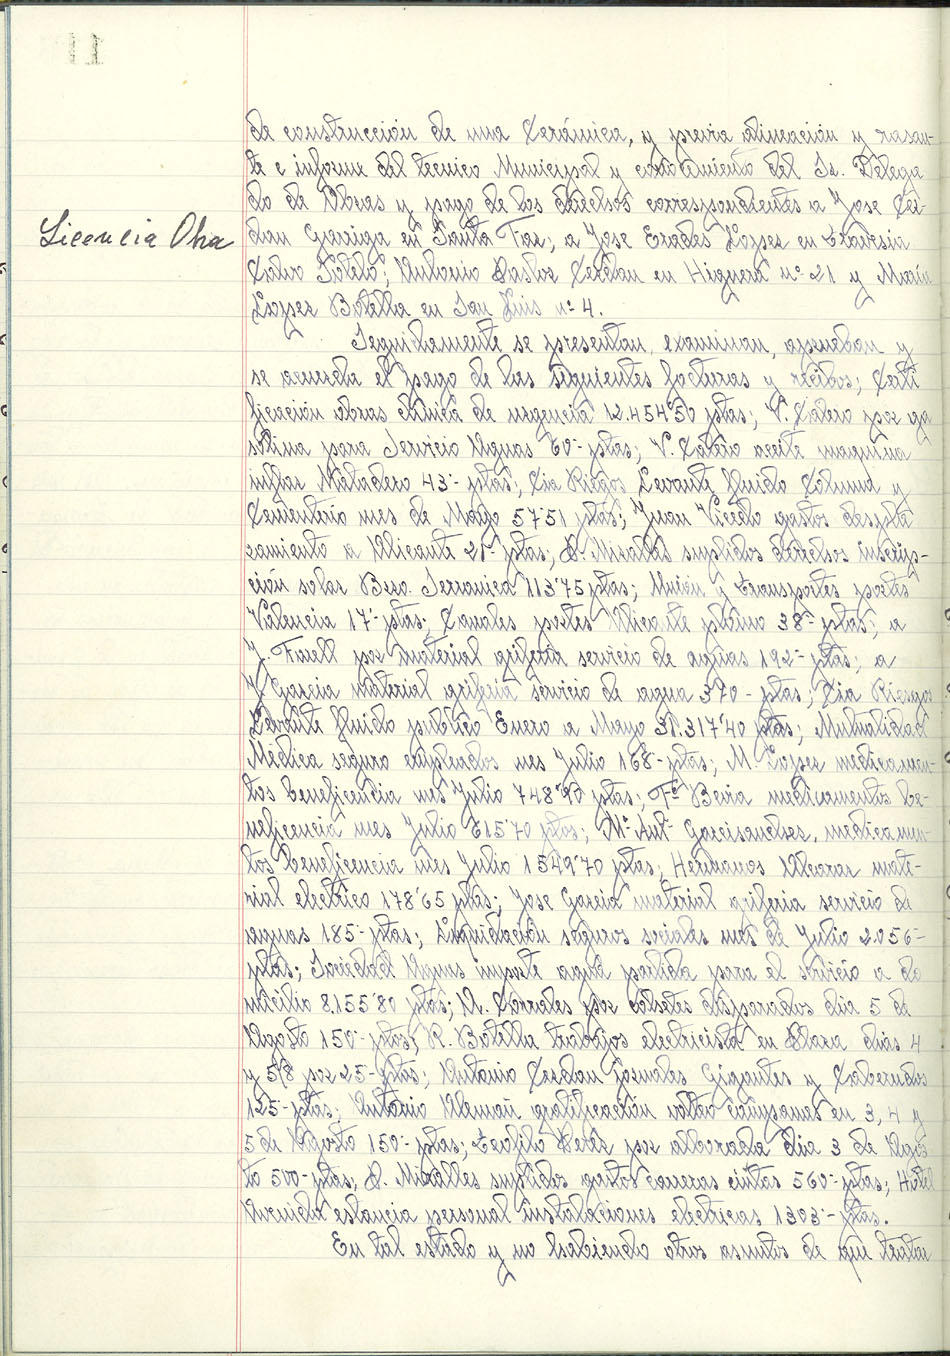 de construcción de una Cerámica, y previa alineación y rasan-
te e informe del tecnico Municipal y del Sr. Delega
do de Obras y pago de los derechos correspondientes a Jose Cer-
Licencia Obra
dan Garriga en Santa Faz; a Jose Erades Lopez en travesia
Calvo Sotelo; Antonio Pastor Cerdan en Higuera nº 21 y Maria
Lopez Botella en San Luis nº 4.
Seguidamente se presentan, examinan, aprueban y
se acuerda el pago de las siguientes facturas y recibos; Certi
ficación obras clinica de urgencia 12.454'50 ptas; V. Calero por ga
solina para Servicio Aguas 60'- ptas; V. Calero aceite maquina
inflar Matadero 43'- ptas; Cia Riegos Levante fluido Columd y
Cementerio mes de Mayo 57'51 ptas; Juan Vicedo gastos despla
zamiento a Alicante 21'- ptas; D. Miralles suplidos derechos inscrip-
ción solar Bero. Serranica 113'75 ptas; Muxin y transportes portes
Valencia 17'- ptas; Canales portes Alicante plomo 38'- ptas; a
J. Farell por material griferia servicio de aguas 192'- ptas; a
J. Garcia material griferia servicio de agua 370- ptas; Cia Riesgos
Levante fluido publico Enero a Mayo 31.317'40 ptas; Mutualidad
Médica seguro empleados mes Julio 168- ptas; M. Lopez medicamen-
tos beneficencia mes Julio 748'90 ptas; Fº Beviá medicamentos be-
neficencia mes Julio 615'70 ptas; Mº Antº Garcisanches, medicamen-
tos beneficencia mes Julio 1549'70 ptas; Hermanos Alcaraz mate-
rial electrico 178'65 ptas; Jose Garcia material griferia servicio de
aguas 185- ptas; Liquidación seguros sociales mes de Julio 2.056'-
ptas; Sociedad Aguas importe agua perdida para el servicio a do
micilio 8.155'80 ptas; A. Corrales por cohetes disparados dia 5 de
Agosto 150'- ptas; R. Botella trabajos electricista en Plaza dias 4
y 5/8 por 25- ptas; Antonio Cerdan jornales Gigantes y Cabezudos
125- ptas; Antonio Alemañ gratificación volteo campanas en 3, 4 y
5 de Agosto 150'- ptas; Teofilo Peres por alborada dia 3 de Agos
to 500- ptas; D. Miralles suplidos gastos carreras cintas 560'- ptas; Hotel
Avenida estancia personal instalaciones electricas 1303'- ptas.
En tal estado y no habiendo otros asuntos de que tratar